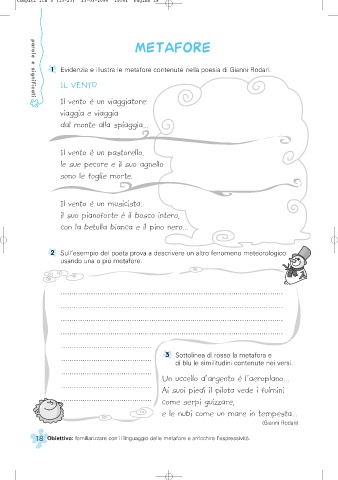 METAFORE
parole e significati
1 Evidenzia e illustra le metafore contenute nella poesia di Gianni Rodari.
IL VENTO
Il vento è un viaggiatore:
viaggia e viaggia
dal monte alla spiaggia...
Il vento è un pastorello,
le sue pecore e il suo agnello
sono le foglie morte.
Il vento è un musicista:
il suo pianoforte è il bosco intero,
con la betulla bianca e il pino nero...
2 Sull'esempio del poeta prova a descrivere un altro fenomeno meteorologico
usando una o più metafore.
3 Sottolinea di rosso la metafora e
di blu le similitudini contenute nei versi.
Un uccello d'argento è l'aeroplano...
Ai suoi piedi il pilota vede i fulmini
come serpi guizzare,
e le nubi come un mare in tempesta...
(Gianni Rodari)
18 Obiettivo: familiarizzare con il linguaggio delle metafore e arricchire l'espressività.